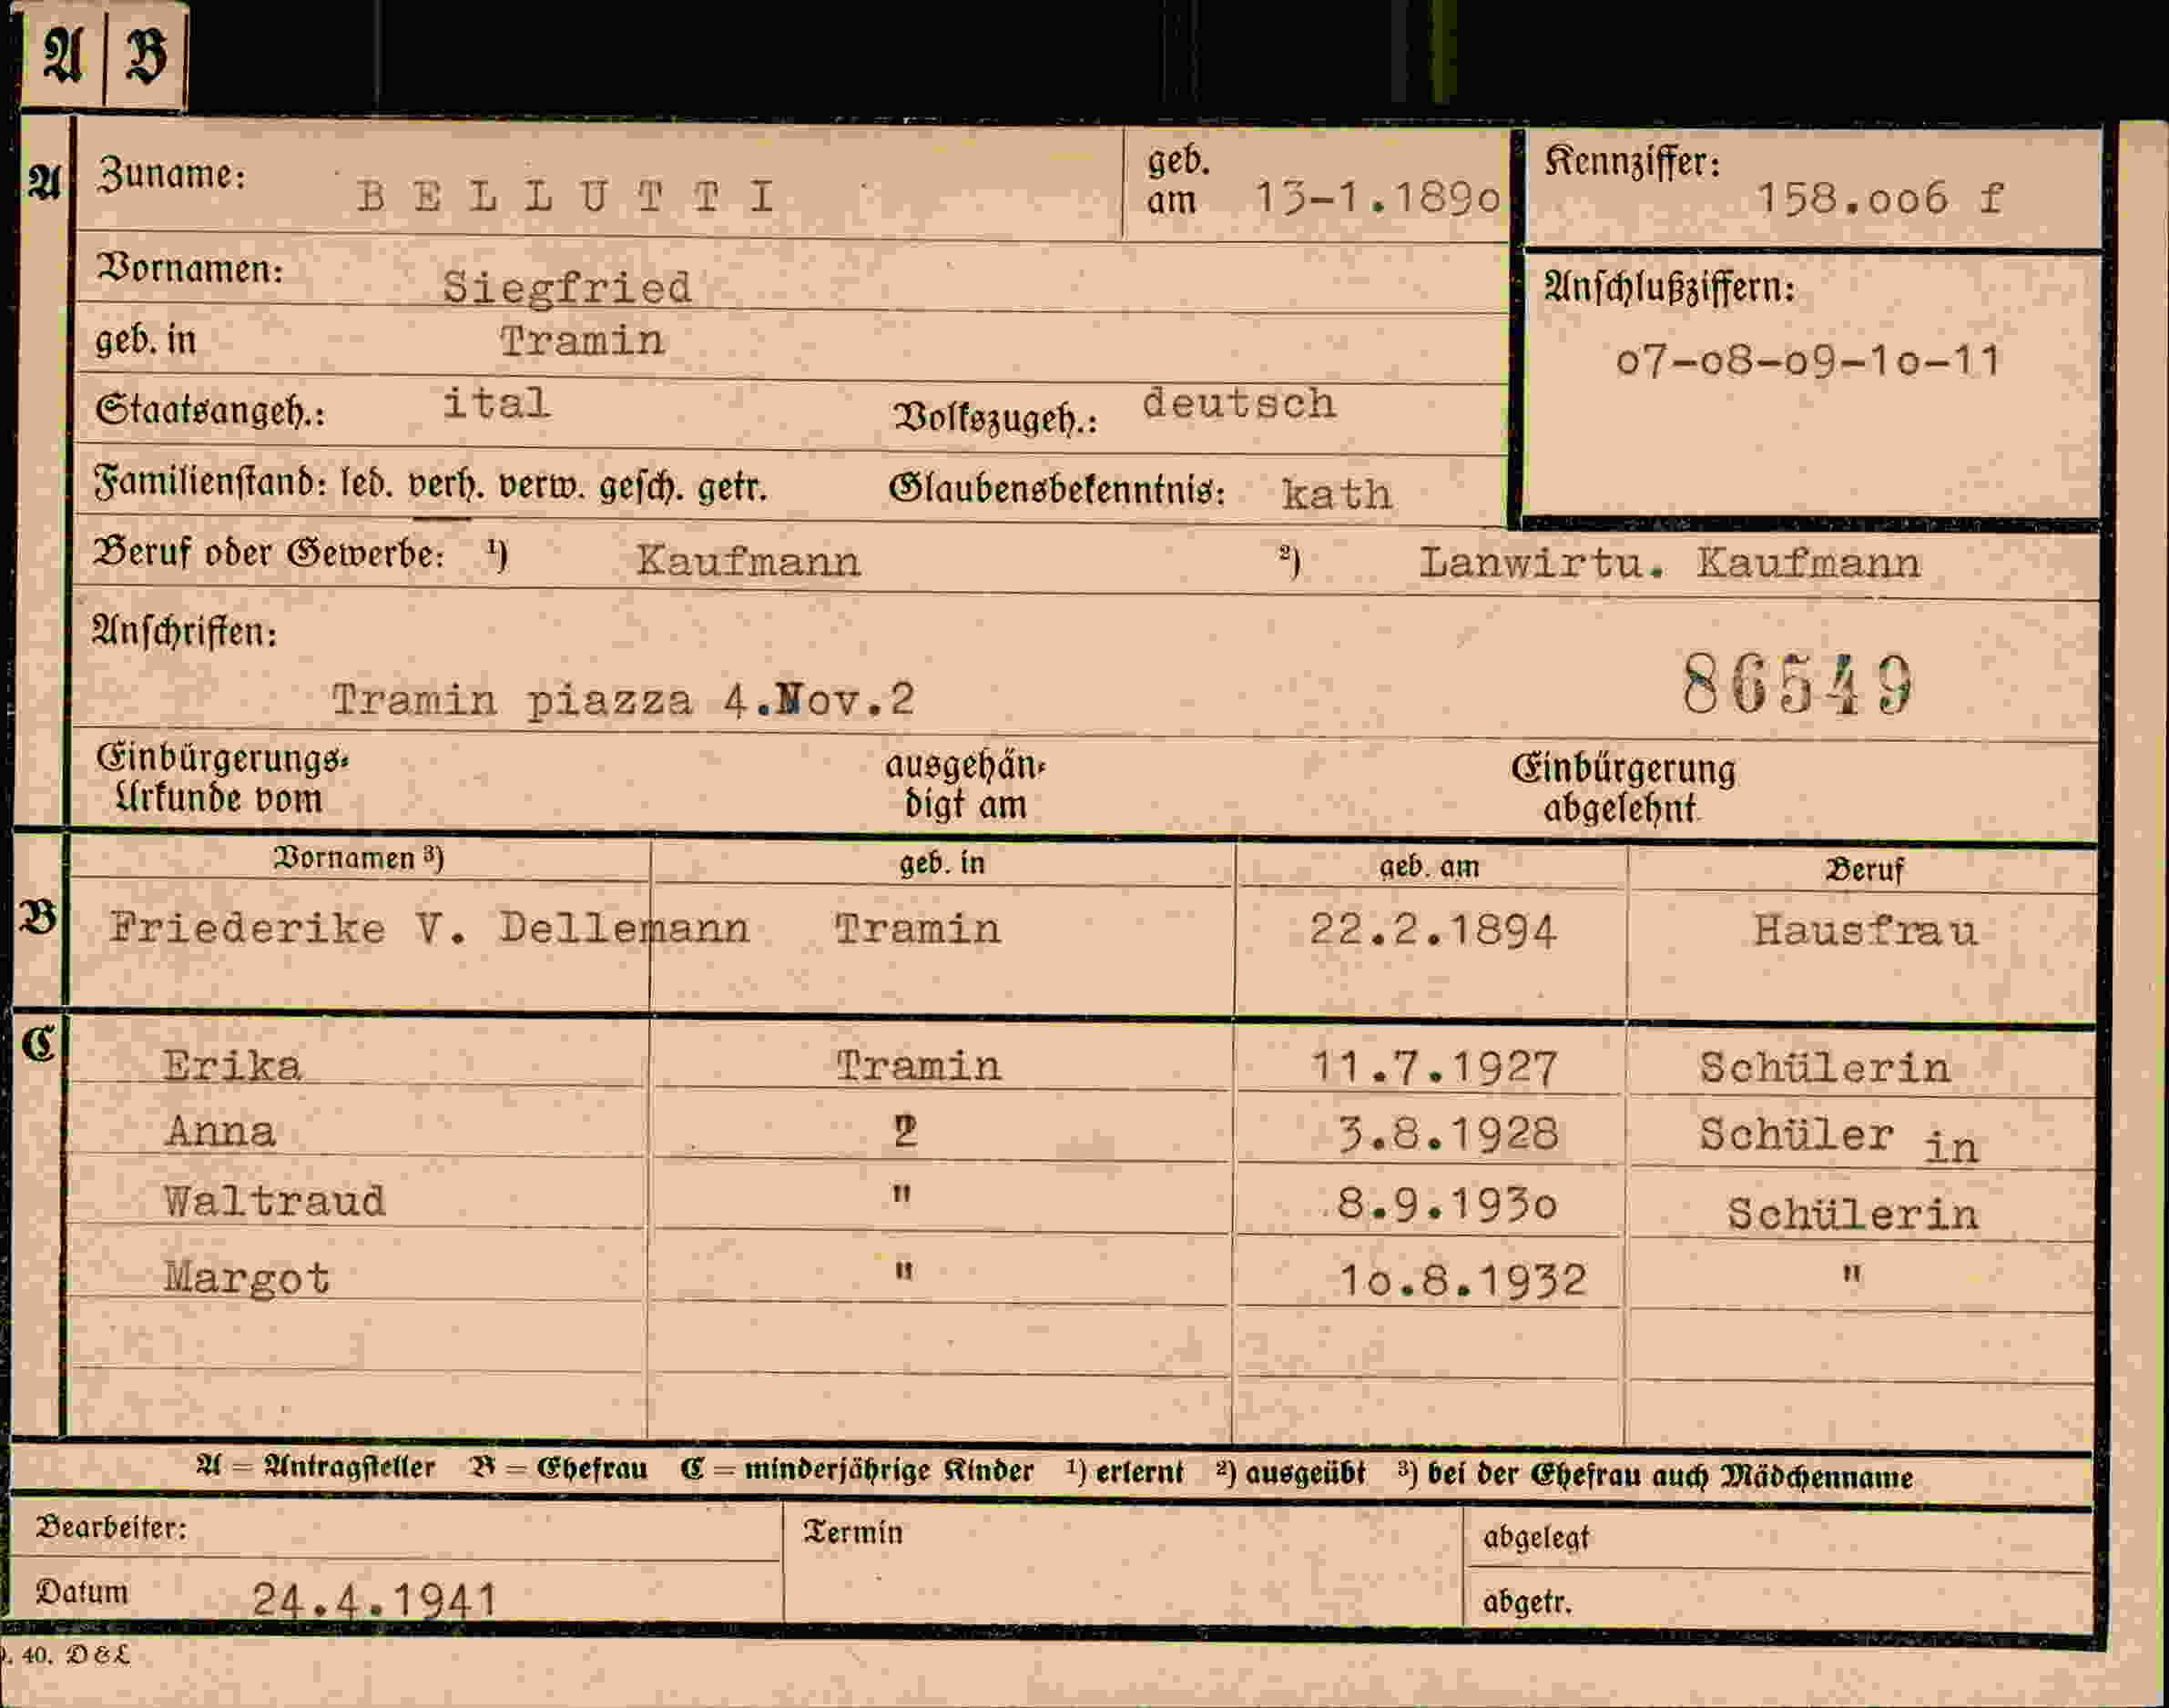 A B
A Zuname: BELLUTTI geb. am 13-1.1890 Kennziffer: 158.006 f
Vornamen: Siegfried
Anschlußziffern:
geb. in Tramin
07-08-09-10-11
Staatsangeh.: ital Volkszugeh.: deutsch
Familienstand: led. verh. verw. gesch. getr. Glaubensbekenntnis: kath
Beruf oder Gewerbe: ¹) Kaufmann ²) Lanwirtu. Kaufmann
Anschriften:
Tramin piazza 4.Nov.2 86549
Einbürgerungs- ausgehän- Einbürgerung
Urkunde vom digt am abgelehnt
Vornamen ³) geb. in geb. am Beruf
B Friederike V. Dellemann Tramin 22.2.1894 Hausfrau
C Erika Tramin 11.7.1927 Schülerin
Anna 3.8.1928 Schüler in
Waltraud " 8.9.1930 Schülerin
Margot " 10.8.1932 "
A = Antragsteller B = Ehefrau C = minderjährige Kinder ¹) erlernt ²) ausgeübt ³) bei der Ehefrau auch Mädchenname
Bearbeiter: Termin abgelegt
Datum 24.4.1941 abgetr.
. 40. D & L